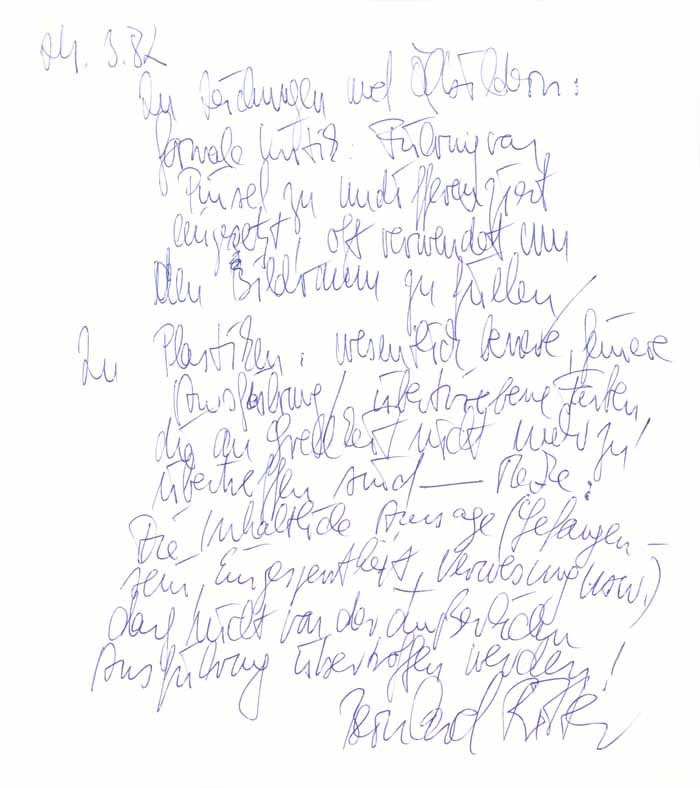 24. 3.82
Zu Zeichnungen und Ölbildern:
formale Kritik: Führung von
Pinsel zu undifferenziert
eingesetzt, oft verwendet um
den Bildraum zu füllen /
Zu Plastiken: wesentlich feinere
Ausführung / übertriebene Farben,
die an Grellheit nicht mehr zu
übertreffen sind —
Die inhaltliche Aussage (Gefangen-
sein, Eingesperrtheit, Verwesung usw.)
darf nicht von der äußerlichen
Ausführung übertroffen werden!